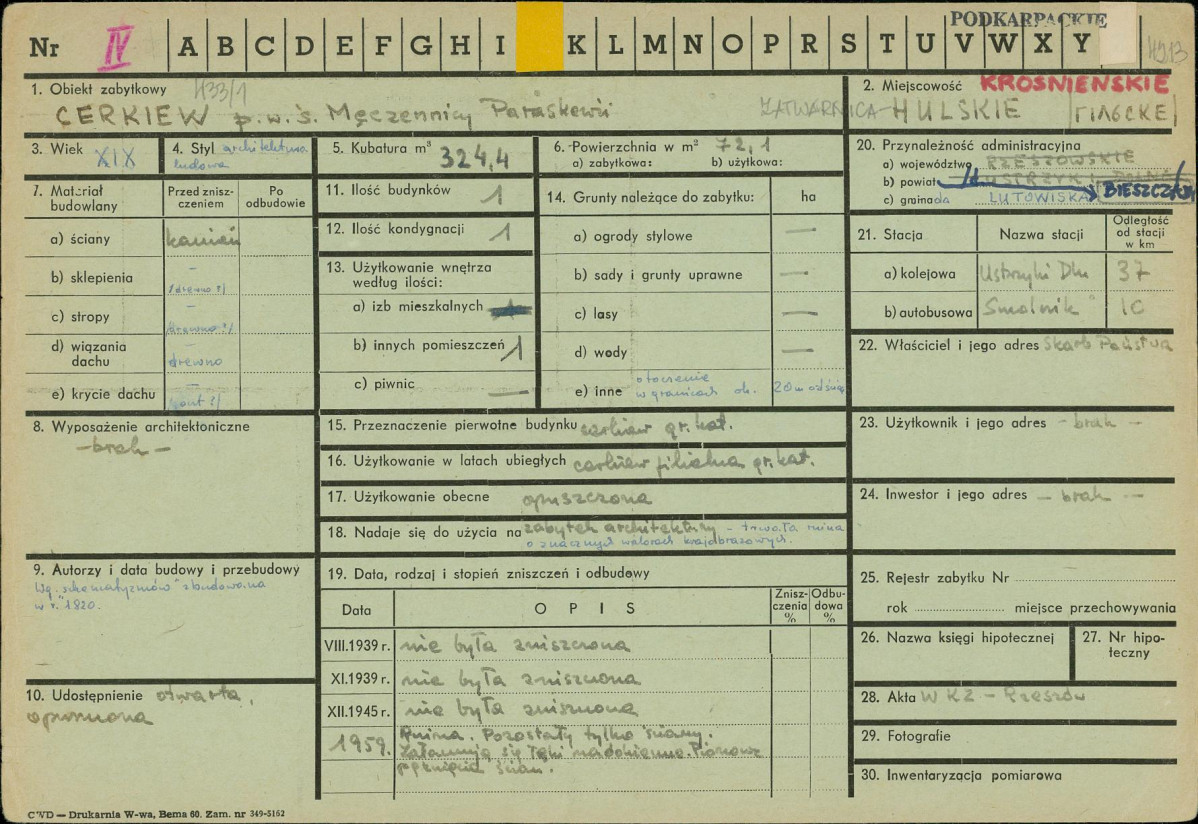 PODKARPACKIE
Nr IV A B C D E F G H I K L M N O P R S T U V W X Y 4213
1. Obiekt zabytkowy 433/1
CERKIEW p.w. ś. Męczennicy Paraskewii
2. Miejscowość KROŚNIEŃSKIE
ZATWARNICA HULSKIE
3. Wiek XIX
4. Styl architektura ludowa
5. Kubatura m³ 324,4
6. Powierzchnia w m² 72,1
a) zabytkowa: b) użytkowa:
20. Przynależność administracyjna
a) województwo RZESZOWSKIE
b) powiat USTRZYKI DOLNE BIESZCZADY
c) gromada LUTOWISKA
7. Materiał budowlany
Przed zniszczeniem
Po odbudowie
a) ściany kamień
b) sklepienia – /drewno ?/
c) stropy – /drewno ?/
d) wiązania dachu – drewno
e) krycie dachu – /gont ?/
11. Ilość budynków 1
12. Ilość kondygnacji 1
13. Użytkowanie wnętrza
według ilości:
a) izb mieszkalnych
b) innych pomieszczeń 1
c) piwnic —
14. Grunty należące do zabytku: ha
a) ogrody stylowe —
b) sady i grunty uprawne —
c) lasy —
d) wody —
e) inne otoczenie w granicach ok. 20m od
21. Stacja Nazwa stacji Odległość od stacji w km
a) kolejowa Ustrzyki Dln 37
b) autobusowa "Smolnik" 10
22. Właściciel i jego adres Skarb Państwa
8. Wyposażenie architektoniczne
– brak –
15. Przeznaczenie pierwotne budynku cerkiew gr. kat.
16. Użytkowanie w latach ubiegłych cerkiew filialna gr. kat.
17. Użytkowanie obecne opuszczona
18. Nadaje się do użycia na zabytek architektury – trwała ruina
o znacznych walorach krajobrazowych.
23. Użytkownik i jego adres – brak –
24. Inwestor i jego adres – brak –
9. Autorzy i data budowy i przebudowy
Wg. "schematyzmów" zbudowana
w r. 1820.
19. Data, rodzaj i stopień zniszczeń i odbudowy
Data OPIS Zniszczenia % Odbudowa %
VIII.1939 r. nie była zniszczona
XI.1939 r. nie była zniszczona
XII.1945 r. nie była zniszczona
1959. Ruina. Pozostały tylko ściany.
Załamują się łęki nadokienne. Pionowe
pęknięcia ścian.
25. Rejestr zabytku Nr
rok miejsce przechowywania
26. Nazwa księgi hipotecznej
27. Nr hipoteczny
10. Udostępnienie otwarta,
opuszczona
28. Akta WKZ – Rzeszów
29. Fotografie
30. Inwentaryzacja pomiarowa
CWD — Drukarnia W-wa, Bema 60. Zam. nr 349-5162